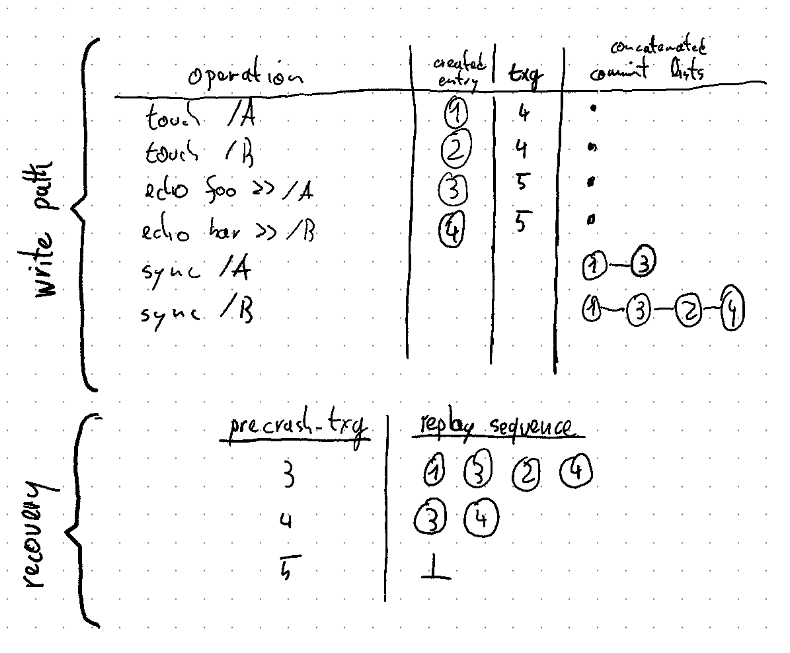 operation created entry txg concatenated commit lists
touch /A 1 4 •
touch /B 2 4 •
echo foo >> /A 3 5 •
echo bar >> /B 4 5 •
sync /A 1 — 3
sync /B 1 — 3 — 2 — 4
write path
precrash-txg replay sequence
3 1 3 2 4
4 3 4
5 ⊥
recovery